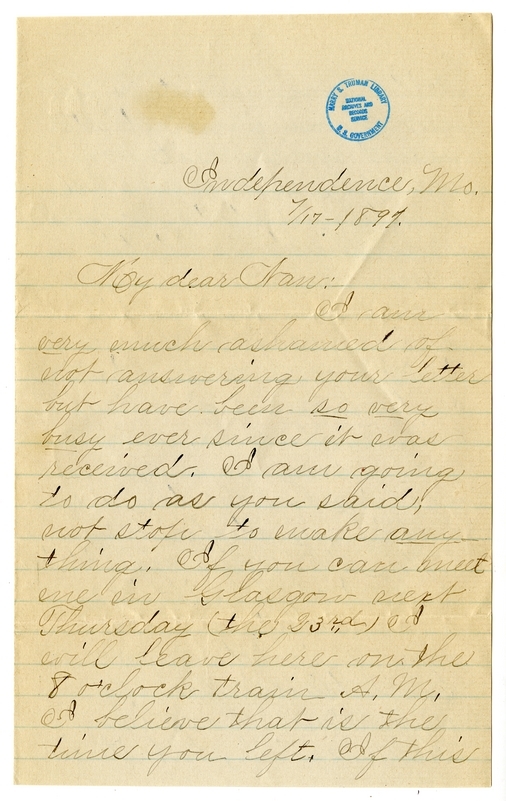 HARRY S. TRUMAN LIBRARY
NATIONAL
ARCHIVES AND
RECORDS
SERVICE
U. S. GOVERNMENT
Independence, Mo.
7/17-1897.
My dear Nan:
I am
very much ashamed of
not answering your letter
but have been so very
busy ever since it was
received. I am going
to do as you said,
not stop to make any-
thing. If you can meet
me in Glasgow next
Thursday (the 23rd,) I
will leave here on the
8 o'clock train A.M.
I believe that is the
time you left. If this